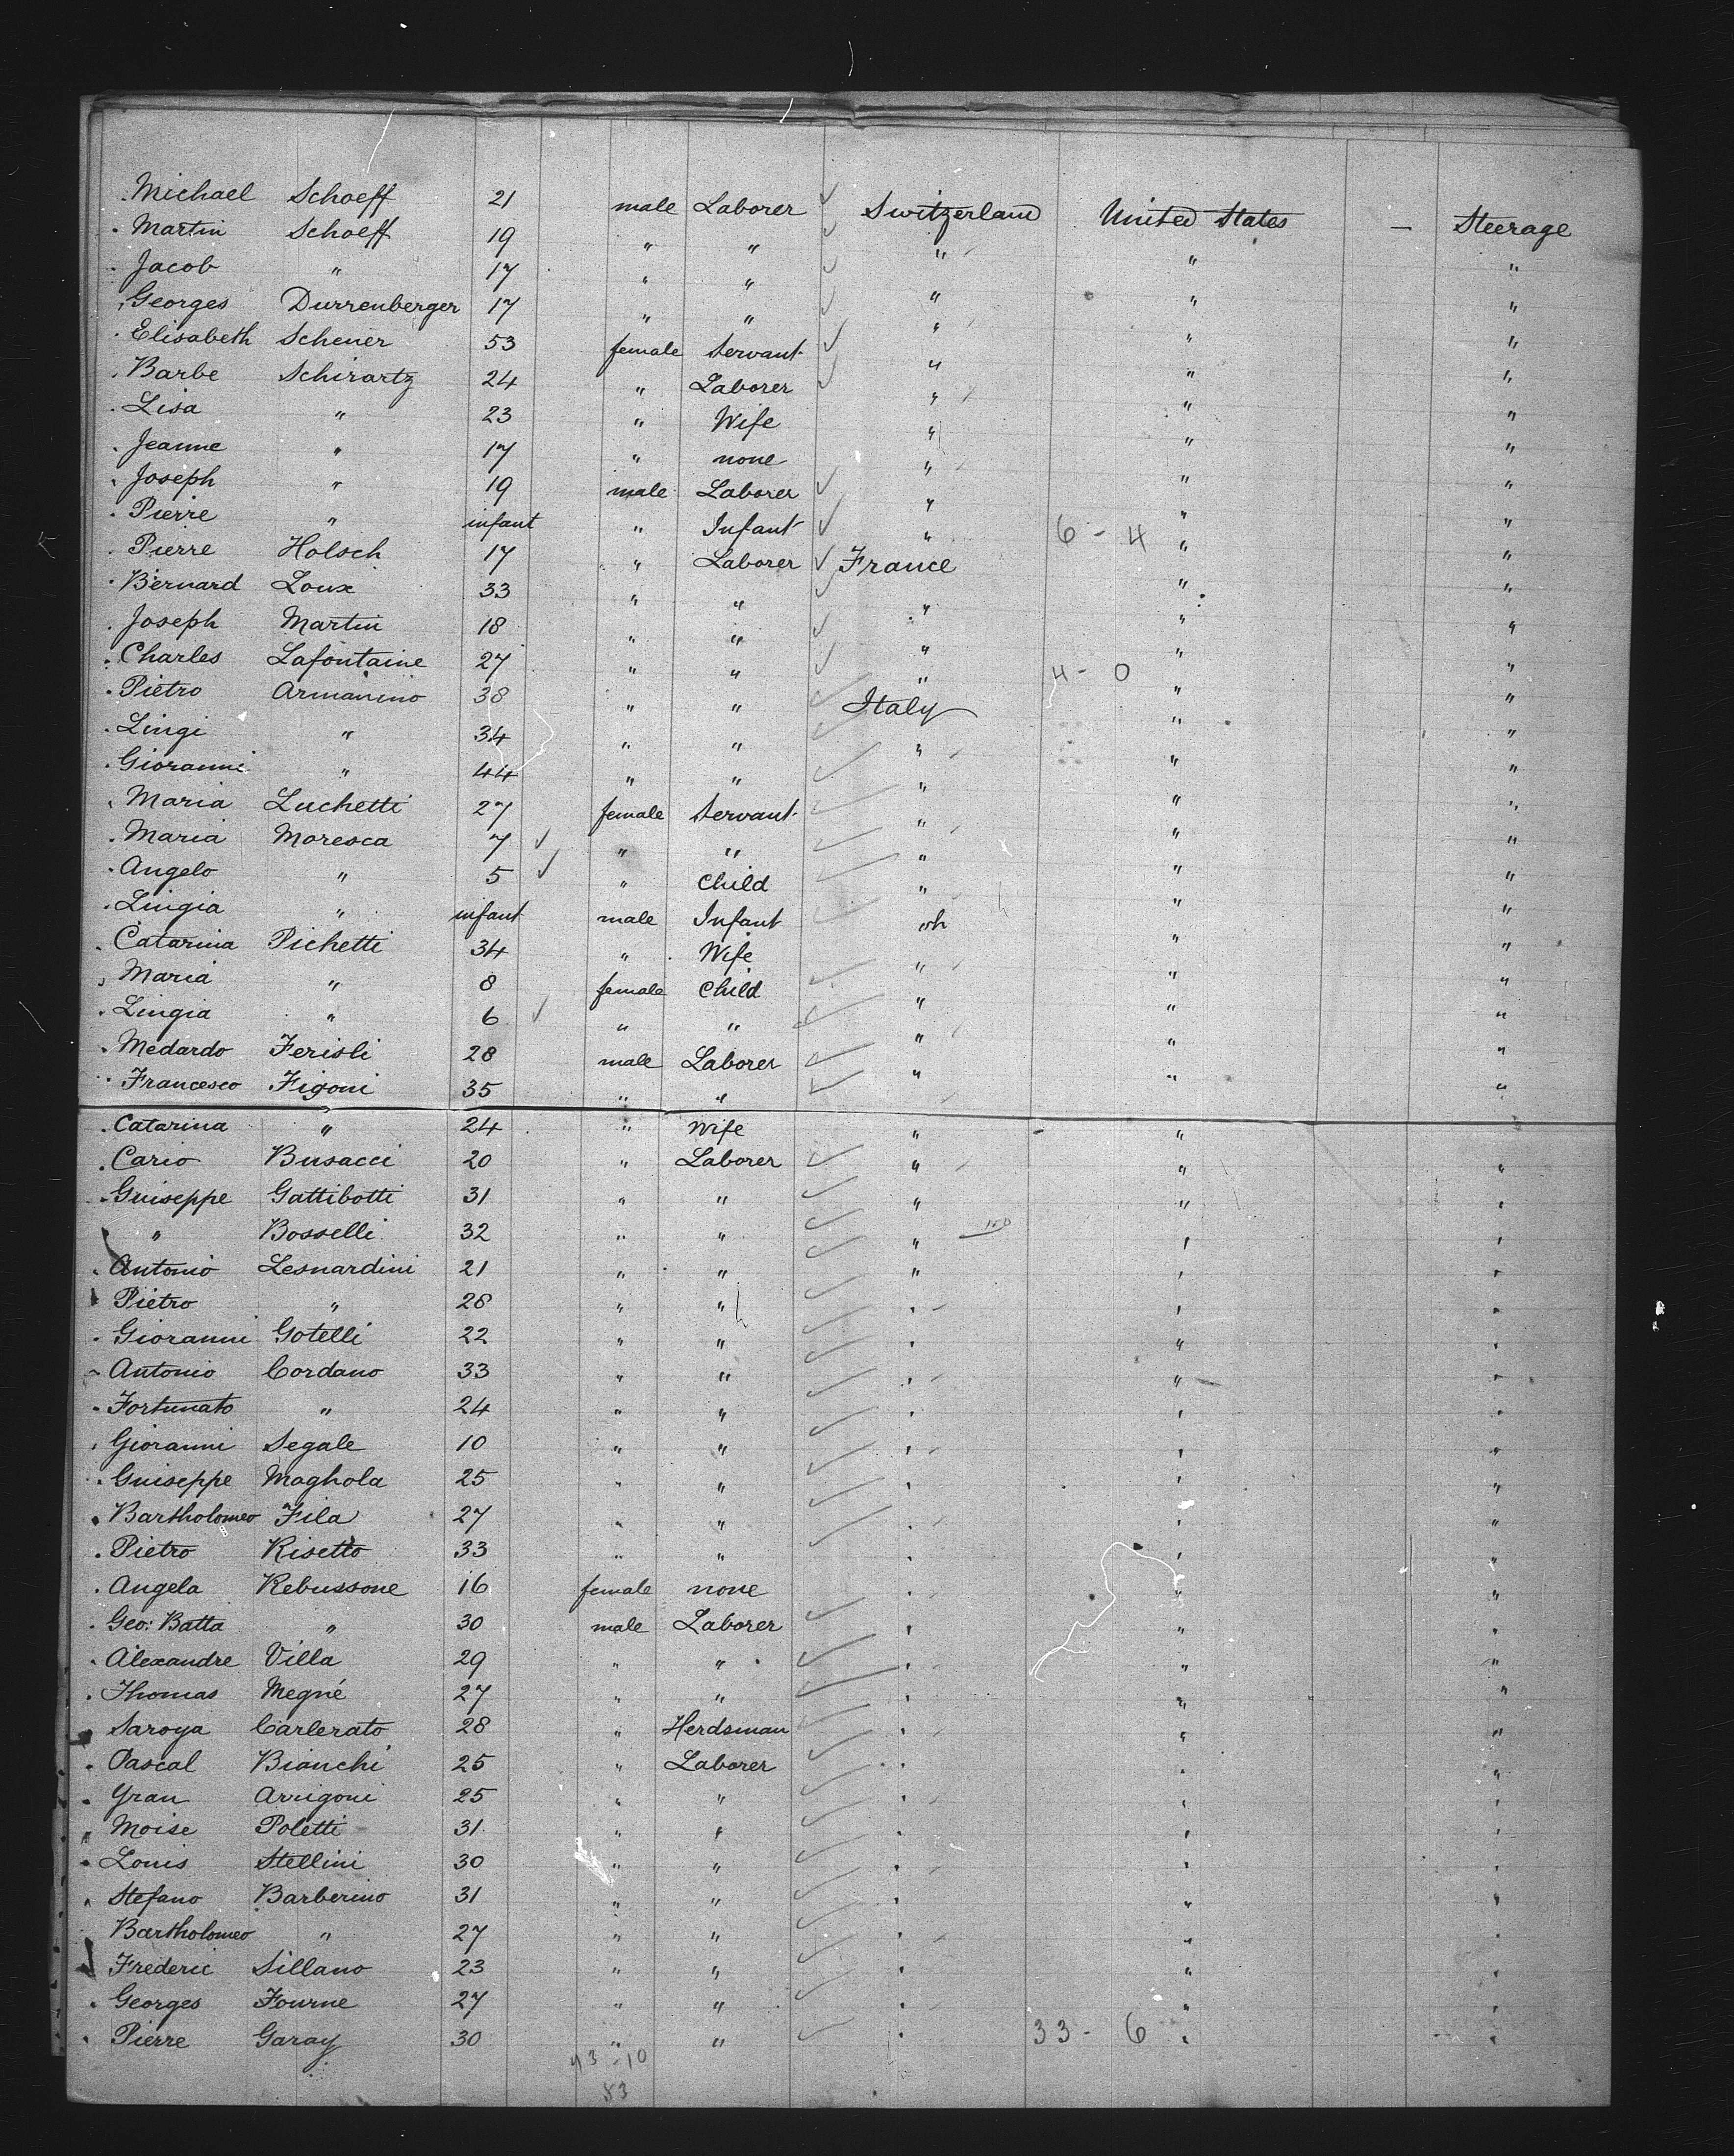 Michael Schoeff 21 male Laborer ✓ Switzerland United States — Steerage
Martin Schoeff 19 " " ✓ " " "
Jacob " 17 " " ✓ " " "
Georges Durrenberger 17 " " ✓ " " "
Elisabeth Schener 53 female Servant ✓ " " "
Barbe Schirartz 24 " Laborer ✓ " " "
Lisa " 23 " Wife " " "
Jeanne " 17 " none " " "
Joseph " 19 male Laborer ✓ " " "
Pierre " infant " Infant ✓ " 6 - 4 " "
Pierre Holsch 17 " Laborer ✓ France " "
Bernard Loux 33 " " ✓ " " "
Joseph Martin 18 " " ✓ " " "
Charles Lafontaine 27 " " ✓ " 4 - 0 " "
Pietro Armanino 38 " " ✓ Italy " "
Lingi " 34 " " ✓ " " "
Gioranni " 44 " " ✓ " " "
Maria Luchetti 27 female Servant ✓ " " "
Maria Moresca 7 ✓ " " ✓ " " "
Angelo " 5 ✓ " Child ✓ " " "
Lingia " infant male Infant ✓ " "
Catarina Pichetti 34 " Wife " " "
Maria " 8 female Child ✓ " " "
Lingia " 6 ✓ " " ✓ " " "
Medardo Ferisli 28 male Laborer ✓ " " "
Francesco Figoni 35 " " ✓
Catarina " 24 " Wife " "
Cario Busacci 20 " Laborer ✓ " " "
Guiseppe Gattibotti 31 " " ✓ " " "
" Bosselli 32 " " ✓ " " "
Antonio Lesnardini 21 " " ✓ " " "
Pietro " 28 " " ✓ " " "
Gioranni Gotelli 22 " " ✓ " " "
Antonio Cordano 33 " " ✓ " " "
Fortunato " 24 " " ✓ " "
Gioranni Segale 10 " " ✓ " " "
Guiseppe Maghola 25 " " ✓ " " "
Bartholomeo Fila 27 " " ✓ " " "
Pietro Risetto 33 " " ✓ " " "
Angela Rebussone 16 female none " " "
Geo: Batta " 30 male Laborer ✓ " " "
Alexandre Villa 29 " " ✓ " " "
Thomas Megné 27 " " ✓ " " "
Saroya Carlerato 28 " Herdsman ✓ " " "
Pascal Bianchi 25 " Laborer ✓ " " "
Yran Arrigoni 25 " " ✓ " " "
Moise Poletti 31 " " ✓ " " "
Louis Stellini 30 " " ✓ " " "
Stefano Barberino 31 " " ✓ " " "
Bartholomeo " 27 " " ✓ " " "
Frederic Sillano 23 " " ✓ " " "
Georges Fourne 27 " " ✓ " " "
Pierre Garay 30 " " ✓ " 33 - 6 " "
43 - 10
53